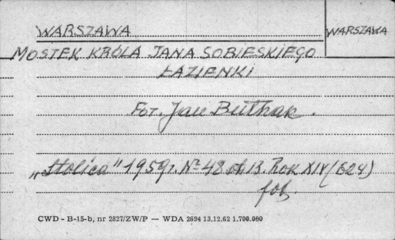 WARSZAWA
WARSZAWA
MOSTEK KRÓLA JANA SOBIESKIEGO
ŁAZIENKI
Fot. Jan Bułhak.
„Stolica" 1959r. Nº 48 str. 13. Rok XIV (624)
fot.
CWD - B-15-b, nr 2827/ZW/P — WDA 2694 13.12.62 1.700.000